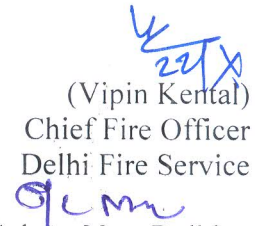 22/X
(Vipin Kental)
Chief Fire Officer
Delhi Fire Service